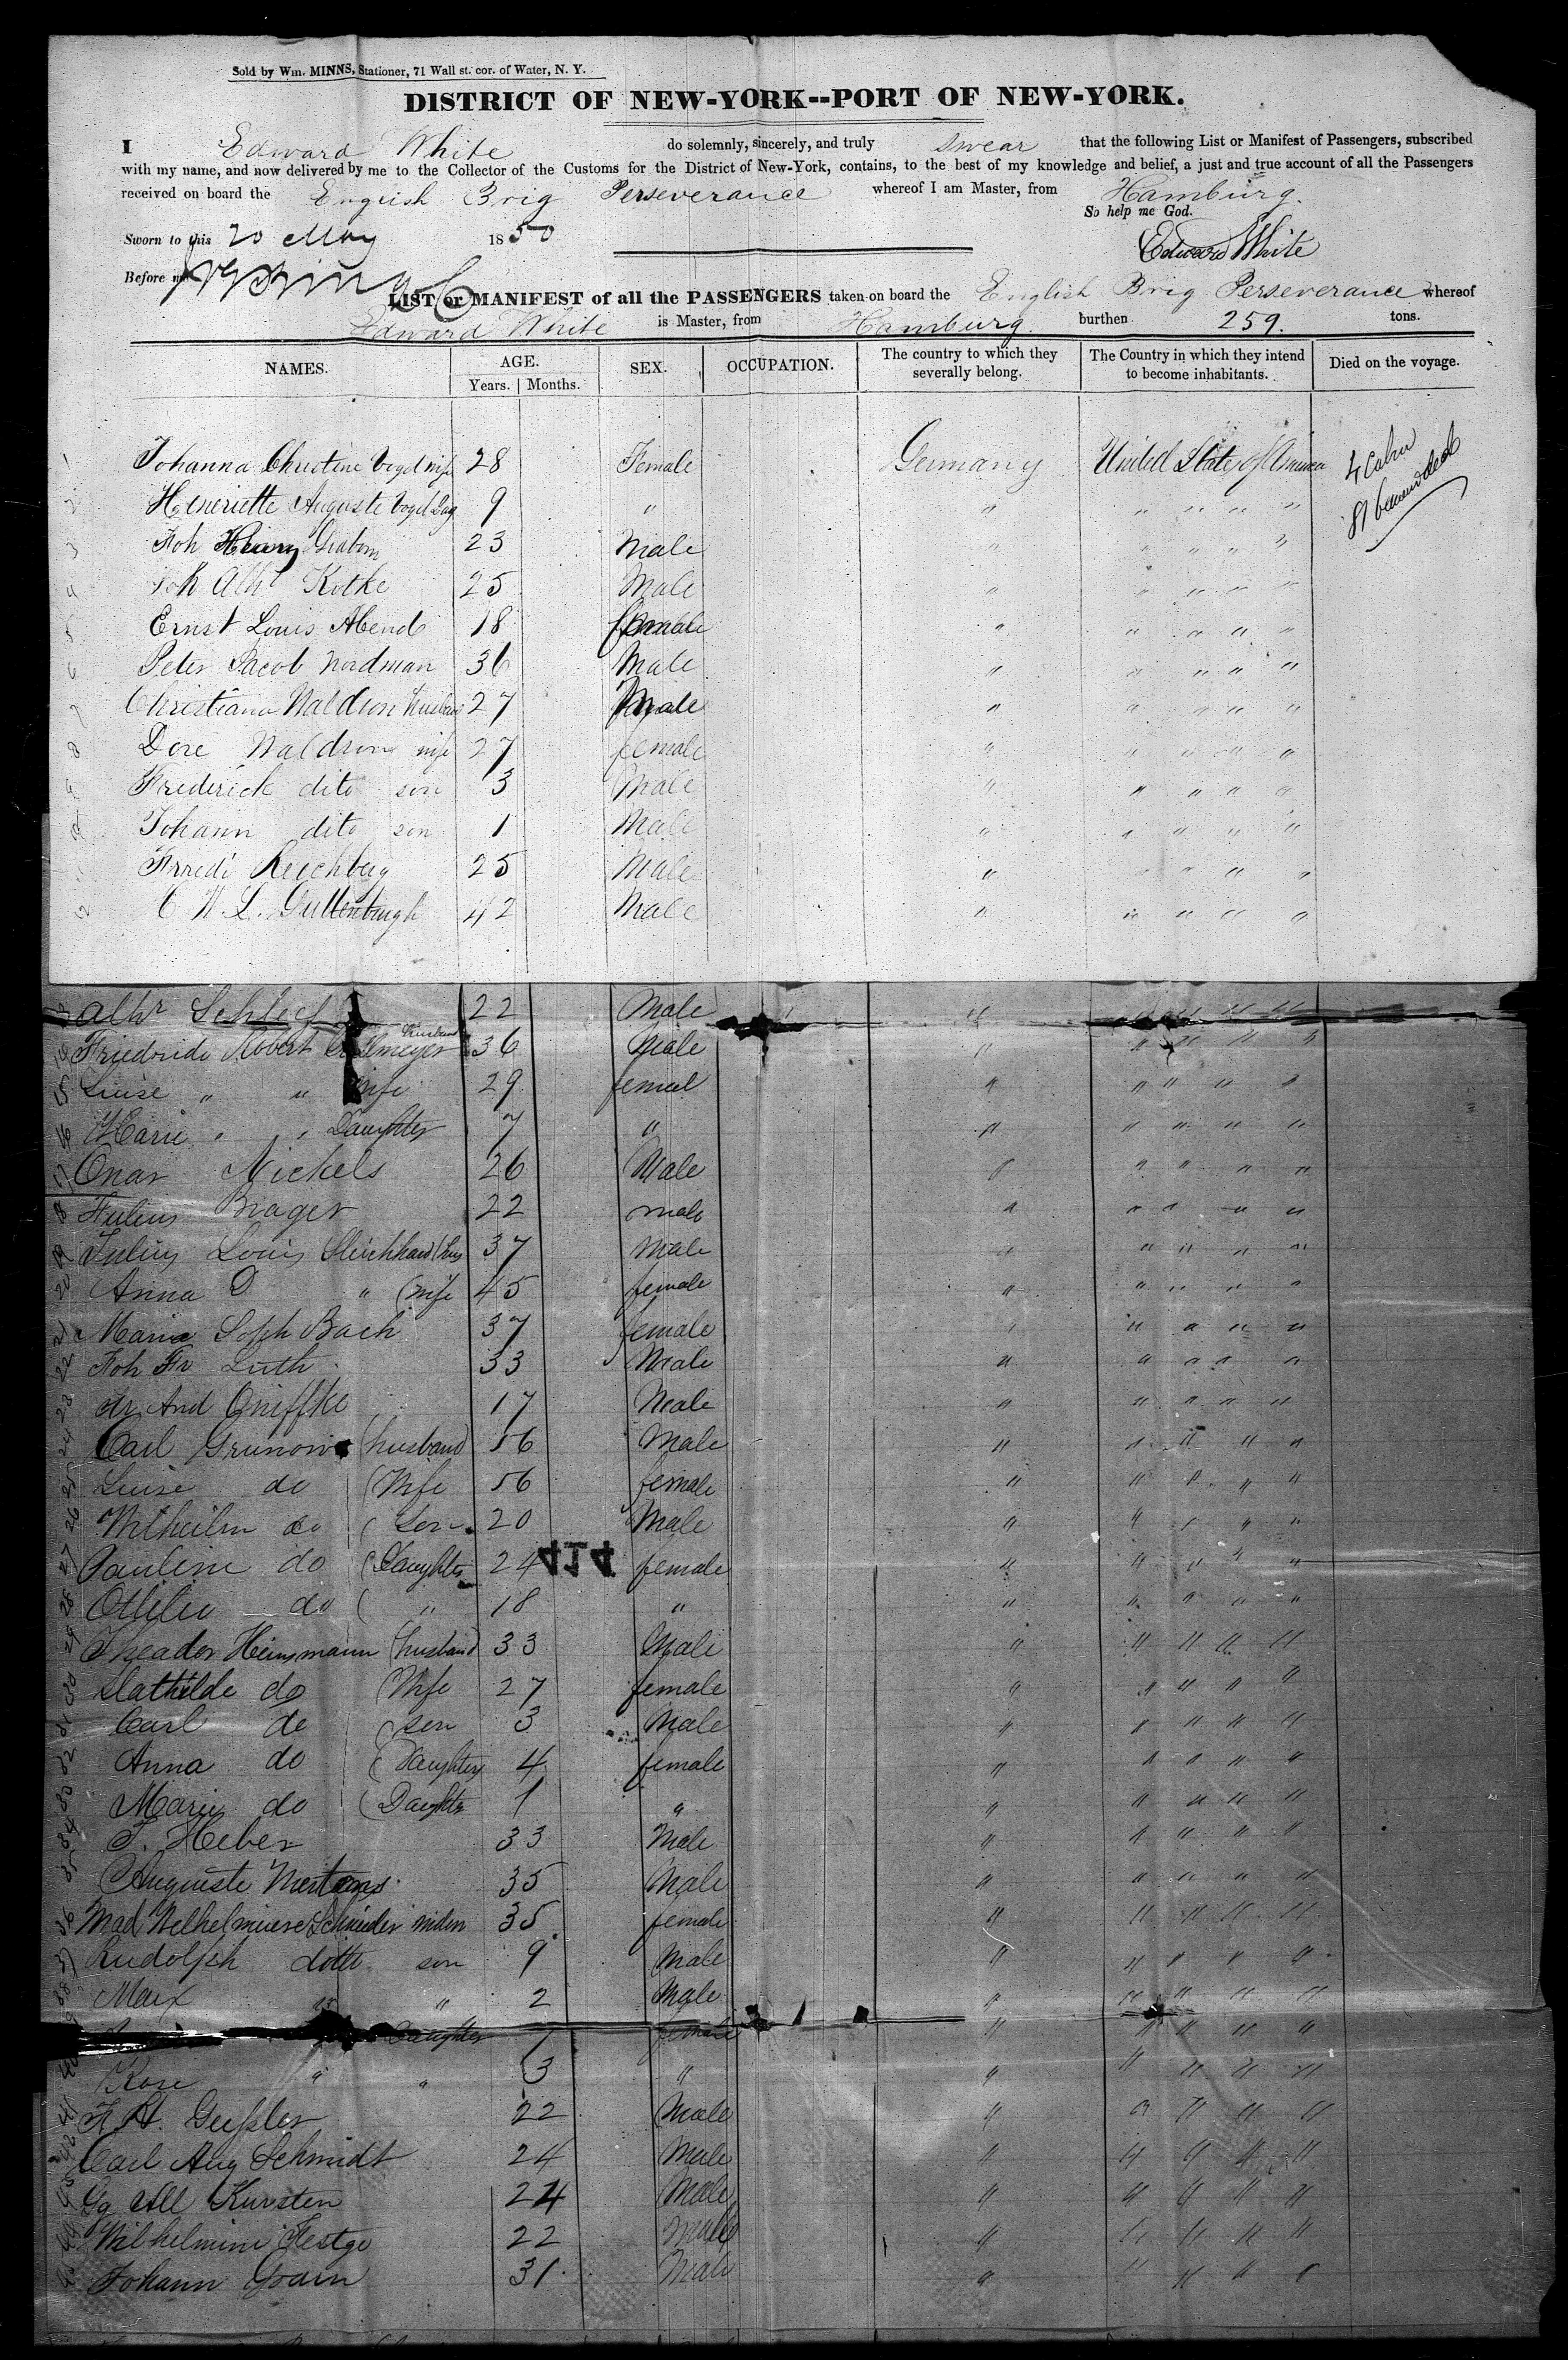 Sold by Wm. MINNS, Stationer, 71 Wall st. cor. of Water, N. Y.
DISTRICT OF NEW-YORK--PORT OF NEW-YORK.
I Edward White do solemnly, sincerely, and truly swear that the following List or Manifest of Passengers, subscribed
with my name, and now delivered by me to the Collector of the Customs for the District of New-York, contains, to the best of my knowledge and belief, a just and true account of all the Passengers
received on board the English Brig Perseverance whereof I am Master, from Hamburg.
So help me God.
Sworn to this 20 May 1850
Edward White
Before me
LIST or MANIFEST of all the PASSENGERS taken on board the English Brig Perseverance whereof
Edward White is Master, from Hamburg. burthen 259. tons.
NAMES. AGE. Years. Months. SEX. OCCUPATION. The country to which they severally belong. The Country in which they intend to become inhabitants. Died on the voyage.
1 Johanna Christine Vogel wife 28 Female Germany United State of America 4 Cabin
2 Heneriette Auguste Vogel Dag 9 " " " " " "
3 Joh Henry 23 Male " " " " "
4 Joh Alb Kothe 25 Male " " " " "
5 Ernst Louis Abend 18 " " " " "
6 Peter Jacob Nordman 36 Male " " " " "
7 Christiana Waldron husband 27 Male " " " " "
8 Dore Waldron wife 27 female " " " " "
9 Frederick dito son 3 Male " " " " "
10 Johann dito son 1 Male " " " " "
11 Frredi Reichberg 25 Male " " " " "
12 C W L. Guttenburgh 42 Male " " " " "
13 Albr Schlief 22 Male " " " " "
14 Friedride Robert husband 36 Male " " " " "
15 Luise " " wife 29 femal " " " " "
16 Marie " " Daughter 7 " " " " " "
17 Nickels 26 Male " " " " "
18 Julius Brager 22 male " " " " "
19 Julius Louis (hus 37 Male " " " " "
20 Anna D " (wife 45 female " " " " "
21 Maria Soph Bach 37 female " " " " "
22 Joh Fr Luth 33 Male " " " " "
23 And Gniffke 17 Male " " " " "
24 Carl Grunow (husband 56 Male " " " " "
25 Luise do (Wife 56 female " " " " "
26 Wilheilm do (Son 20 Male " " " " "
27 Pauline do (Daughter 24 female " " " " "
414
28 Ottilie do ( " 18 " " " " " "
29 Theador Heinsmann (husband 33 Male " " " " "
30 Mathilde do (Wife 27 female " " " " "
31 Carl do (son 3 Male " " " " "
32 Anna do (Daughter 4 female " " " " "
33 Marie do (Daughter 1 " " " " " "
34 F. Heber 33 Male " " " " "
35 Auguste Mertens 35 Male " " " " "
36 Mad Welhelmiene Schnieder widow 35 female " " " " "
37 Rudolph dotto son 9 Male " " " " "
38 Max " " 2 Male " " " " "
39 Daughter 7 female " " " " "
40 Rose " " 3 " " " " " "
41 F H. Geissler 22 Male " " " " "
42 Carl Aug Schmidt 24 Male " " " " "
43 Gg All Kursten 24 Male " " " " "
44 Wilhelmine Festge 22 Male " " " " "
45 Johann 31 Male " " " " "